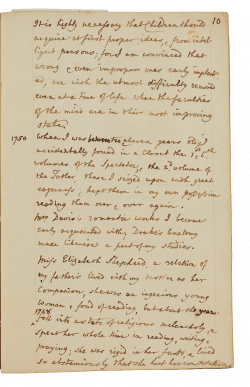 10
It is highly necessary that Children should
acquire at first proper ideas, from intel
ligent persons, for I am convinced that
wrong & even improper ones early implant
ed, are with the utmost difficulty removed
even at a time of life when the faculties
of the mind are in their most improving
state.
1750 When I was between eleven years old, I
accidentally found in a Closet the
volumes of the Spectator, the 2d volume of
the Tatler, these I seized upon with great
eagerness, kept them in my own possession
reading them over & over again.
Mrs Davis's romantic works I became
early acquainted with; Drake's Anatomy
made likewise a part of my studies.
Miss Elizabeth Shepherd, a relation of
my father's lived with my mother as her
Companion, she was an ingenious, young
woman & fond of reading, but about the year
1758
fell into a state of religious melancholy, &
spent her whole time in reading, writing &
praying; she was rigid in her fasts, & lived
so abstemiously that she hurt her constitution